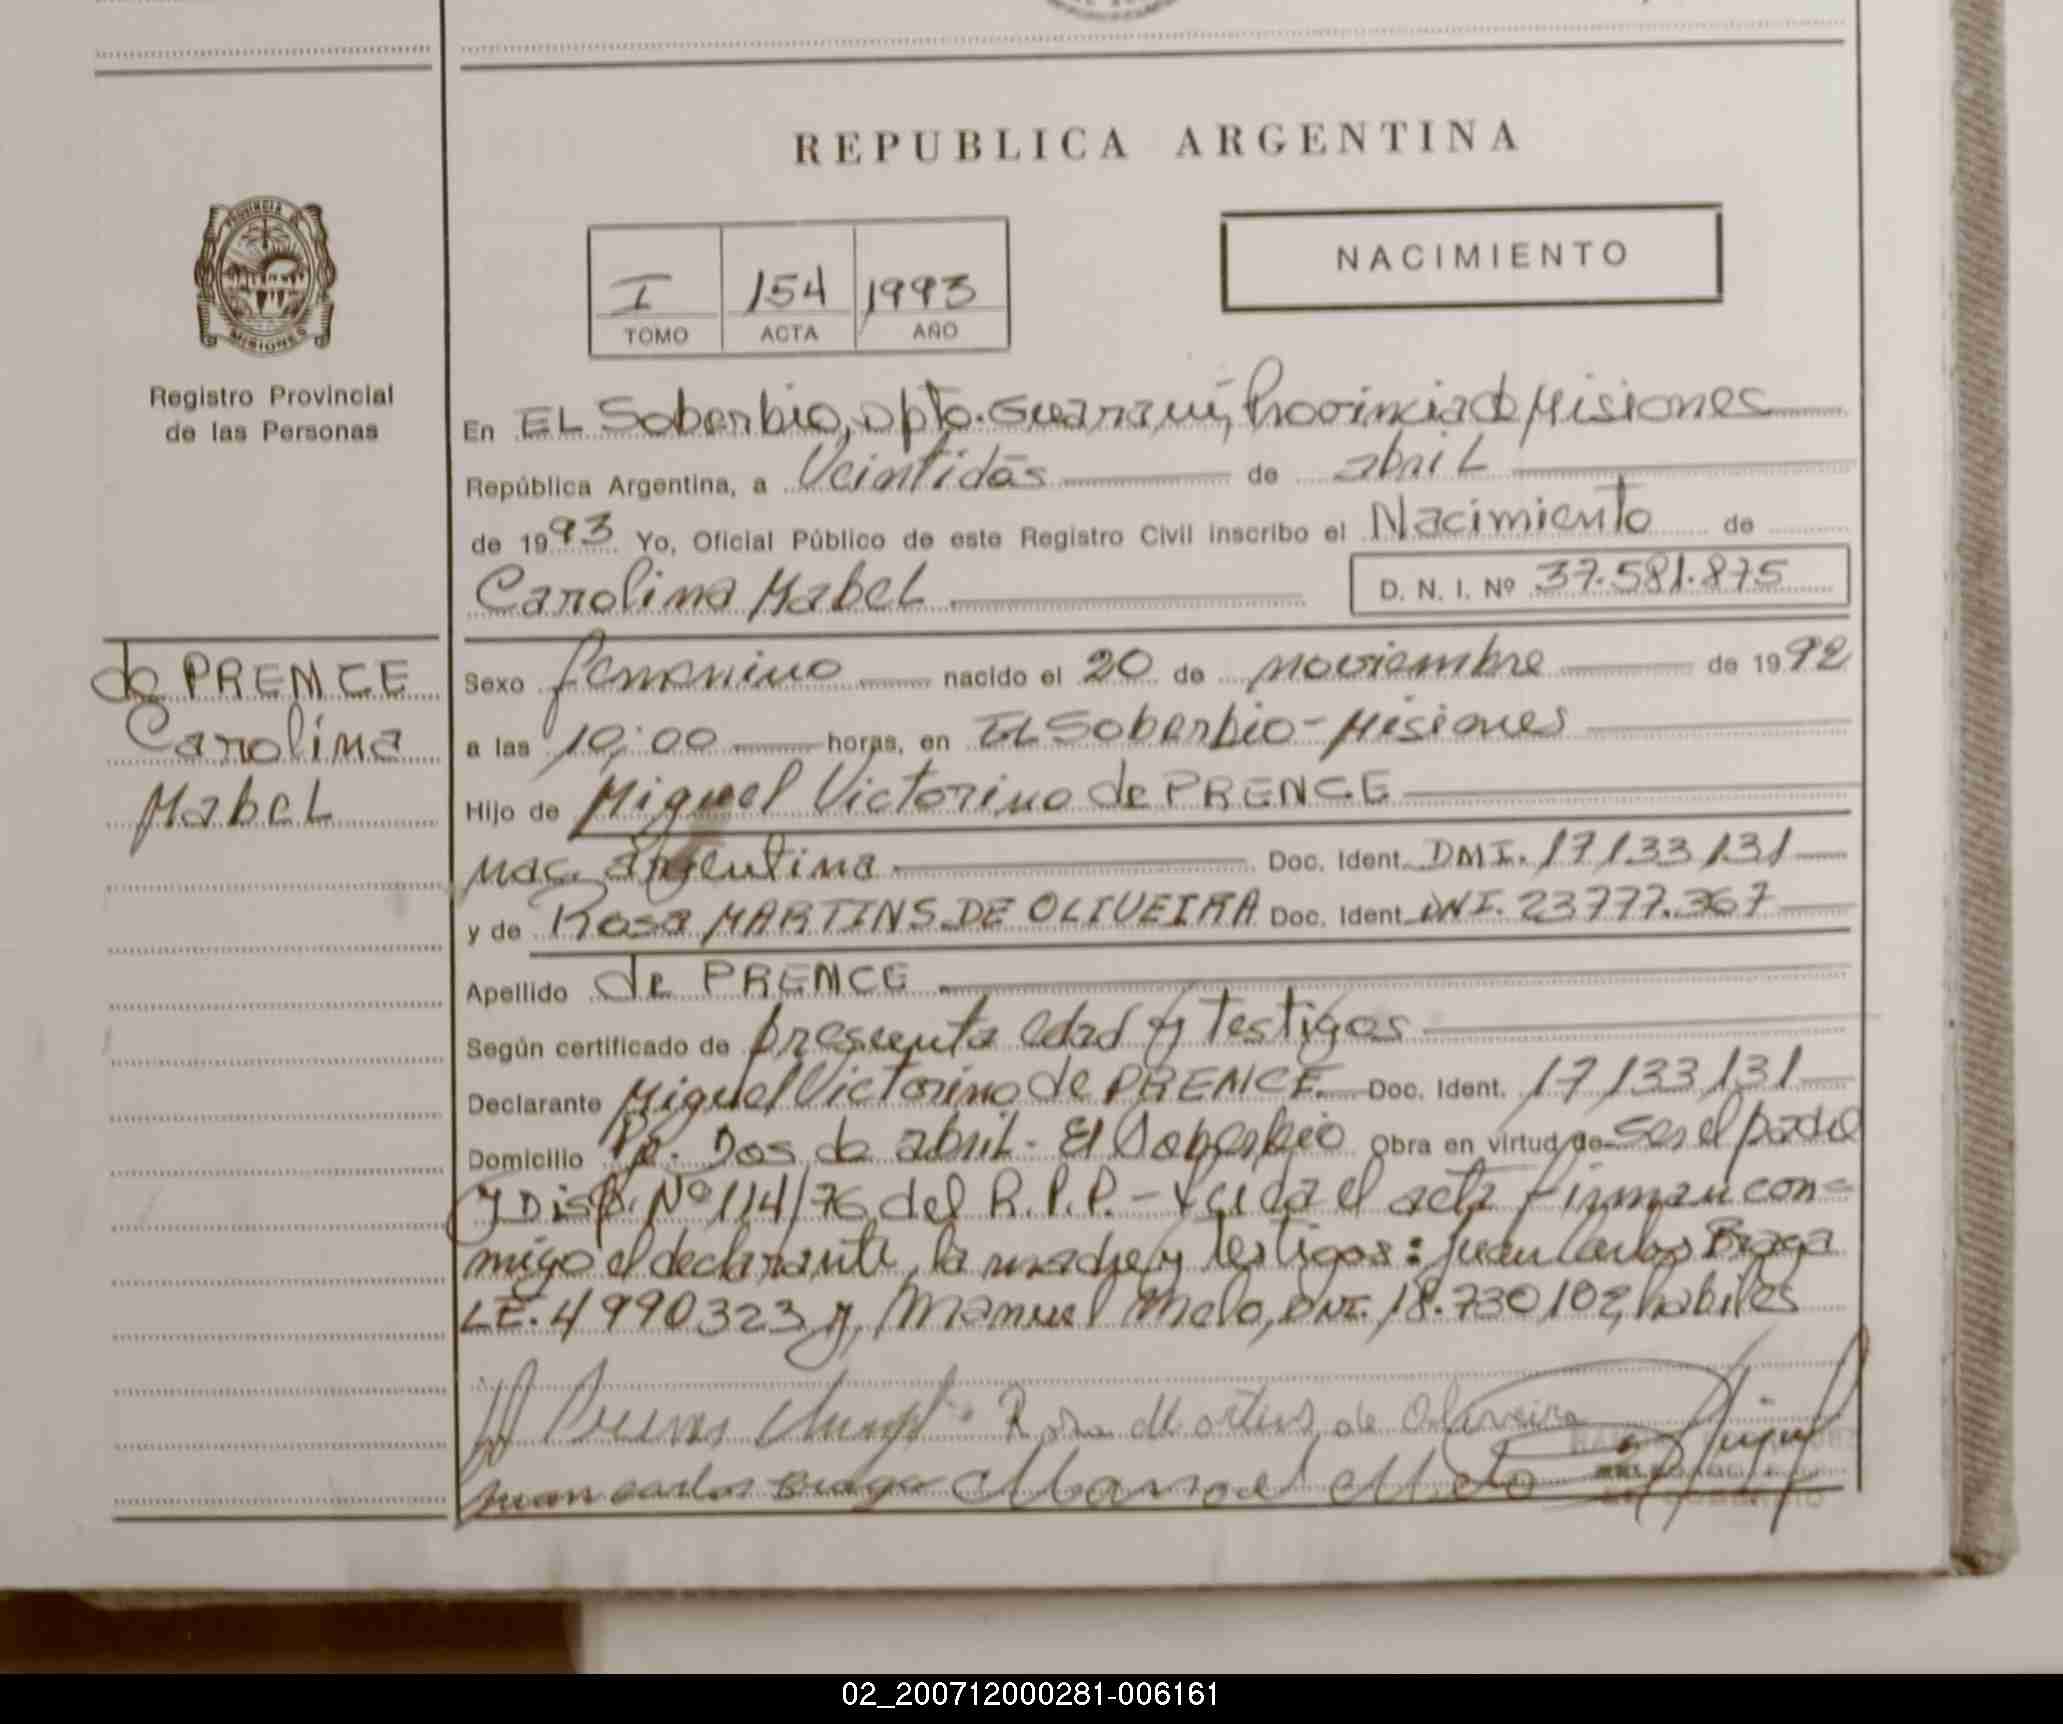 REPUBLICA ARGENTINA
PROVINCIA DE
MISIONES
Registro Provincial
de las Personas
I 154 1993
TOMO ACTA AÑO
NACIMIENTO
En EL Soberbio, Dpto. Guaraní, Provincia de Misiones
República Argentina, a Veintidós de abril
de 1993 Yo, Oficial Público de este Registro Civil inscribo el Nacimiento de
Carolina Mabel D. N. I. Nº 37.581.875
de PRENCE
Carolina
Mabel
Sexo femenino nacido el 20 de noviembre de 1992
a las 10:00 horas, en El Soberbio - Misiones
Hijo de Miguel Victorino de PRENCE
nac. argentina Doc. Ident. DNI. 17133131
y de Rosa MARTINS DE OLIVEIRA Doc. Ident. DNI. 23777.367
Apellido de PRENCE
Según certificado de presunta edad y testigos
Declarante Miguel Victorino de PRENCE Doc. Ident. 17133131
Domicilio Dos de abril - El Soberbio Obra en virtud de ser el padre
y Disp. Nº 114/76 del R.P.P. - Leida el acta firman con-
migo el declarante, la madre y testigos: Juan Carlos Braga
LE. 4990323 y, Manuel Melo, DNI. 18.730102, habiles
Rosa Martins de Oliveira
Juan carlos Braga Manoel Melo
EL SOBERBIO
02_200712000281-006161